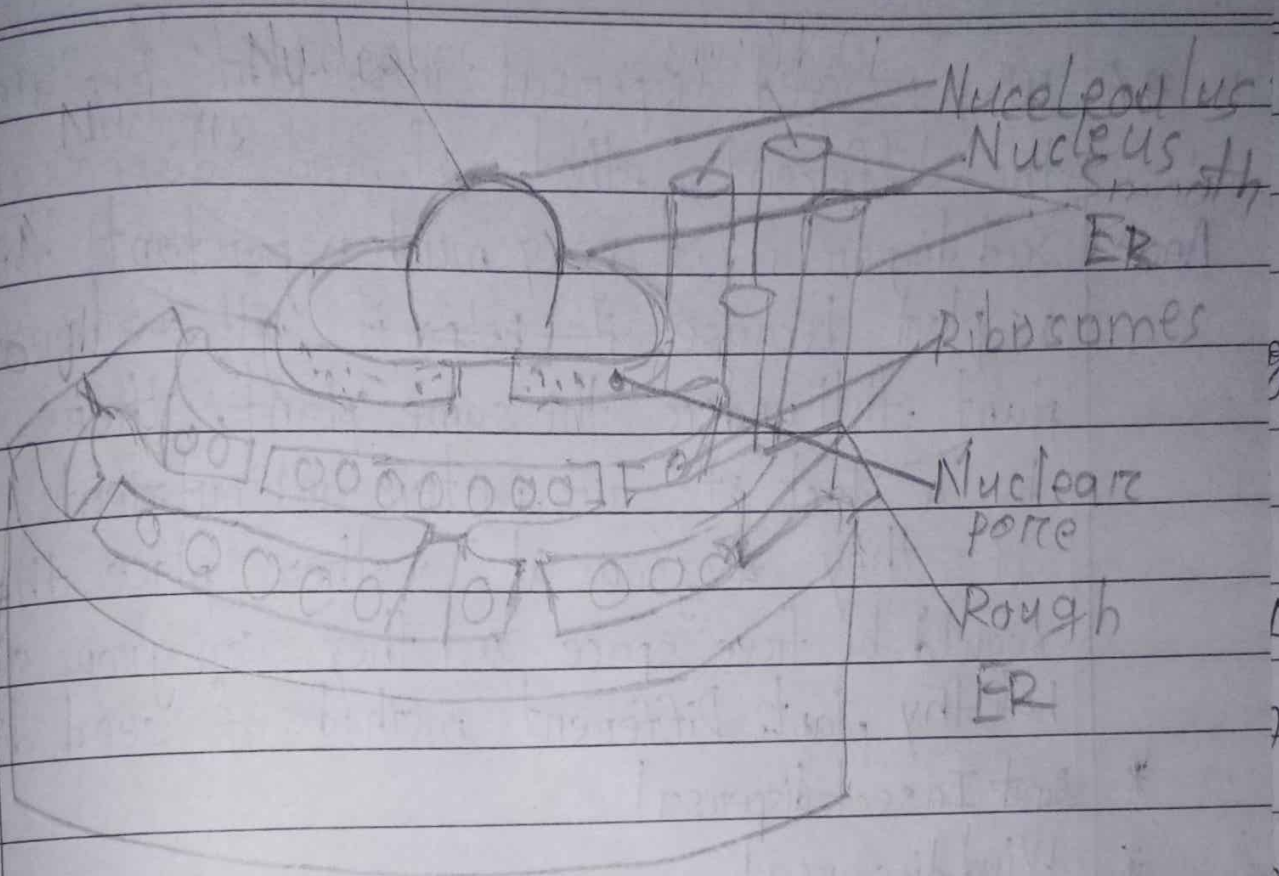 Nuceleoulus
Nucleus
Smooth
ER
Ribosomes
Nuclear
pore
Rough
ER